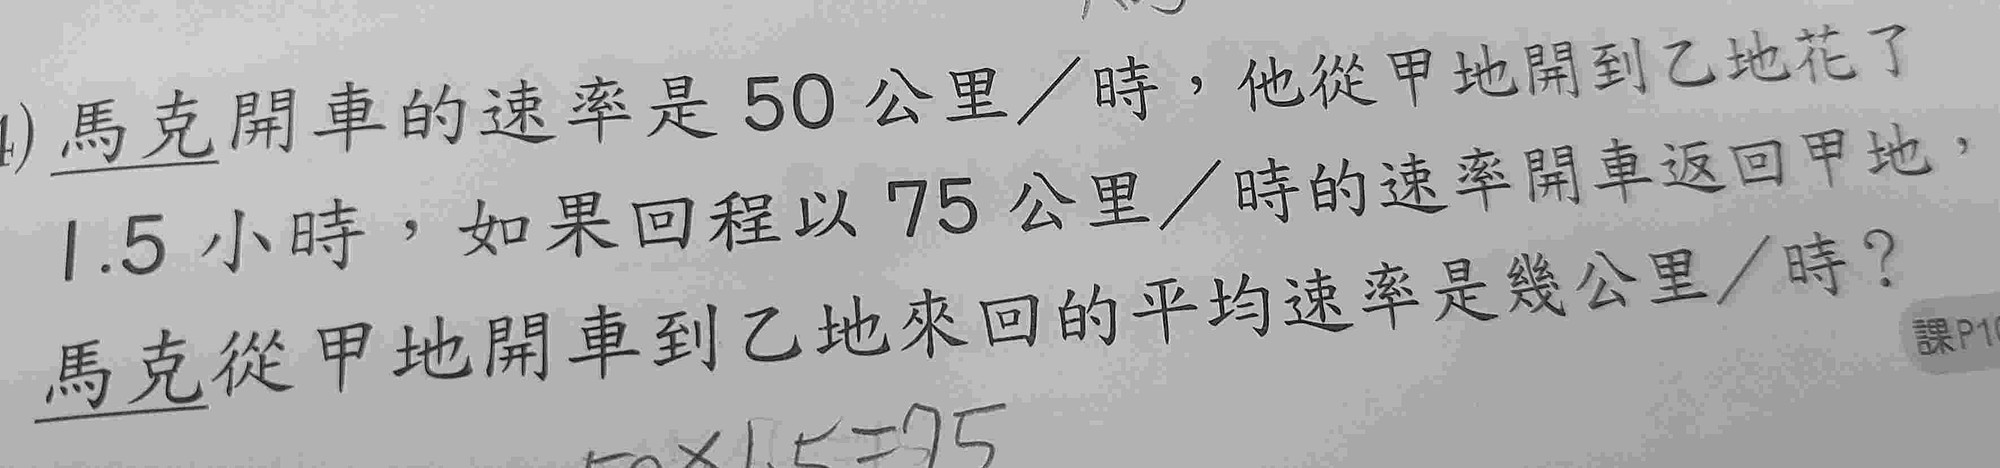 馬克開車的速率是50公里/時，他從甲地開到乙地花了
1.5小時，如果回程以75公里/時的速率開車返回甲地，
馬克從甲地開車到乙地來回的平均速率是幾公里/時？
課P10
50×1.5=75